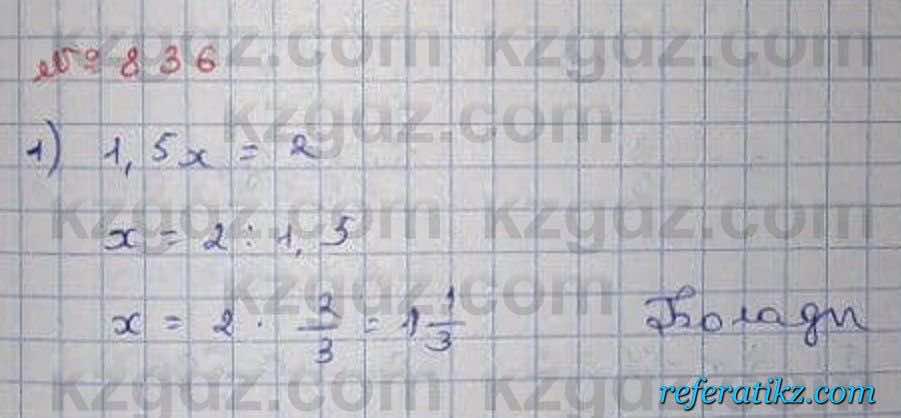 № 836
1) 1,5x = 2
x = 2 : 1,5
x = 2 · 2/3 = 1 1/3 Болады
kzgdz.com kzgdz.com
kzgdz.com
kzgdz.com kzgdz.com
kzgdz.com
kzgdz.com kzgdz.com
referatikz.com